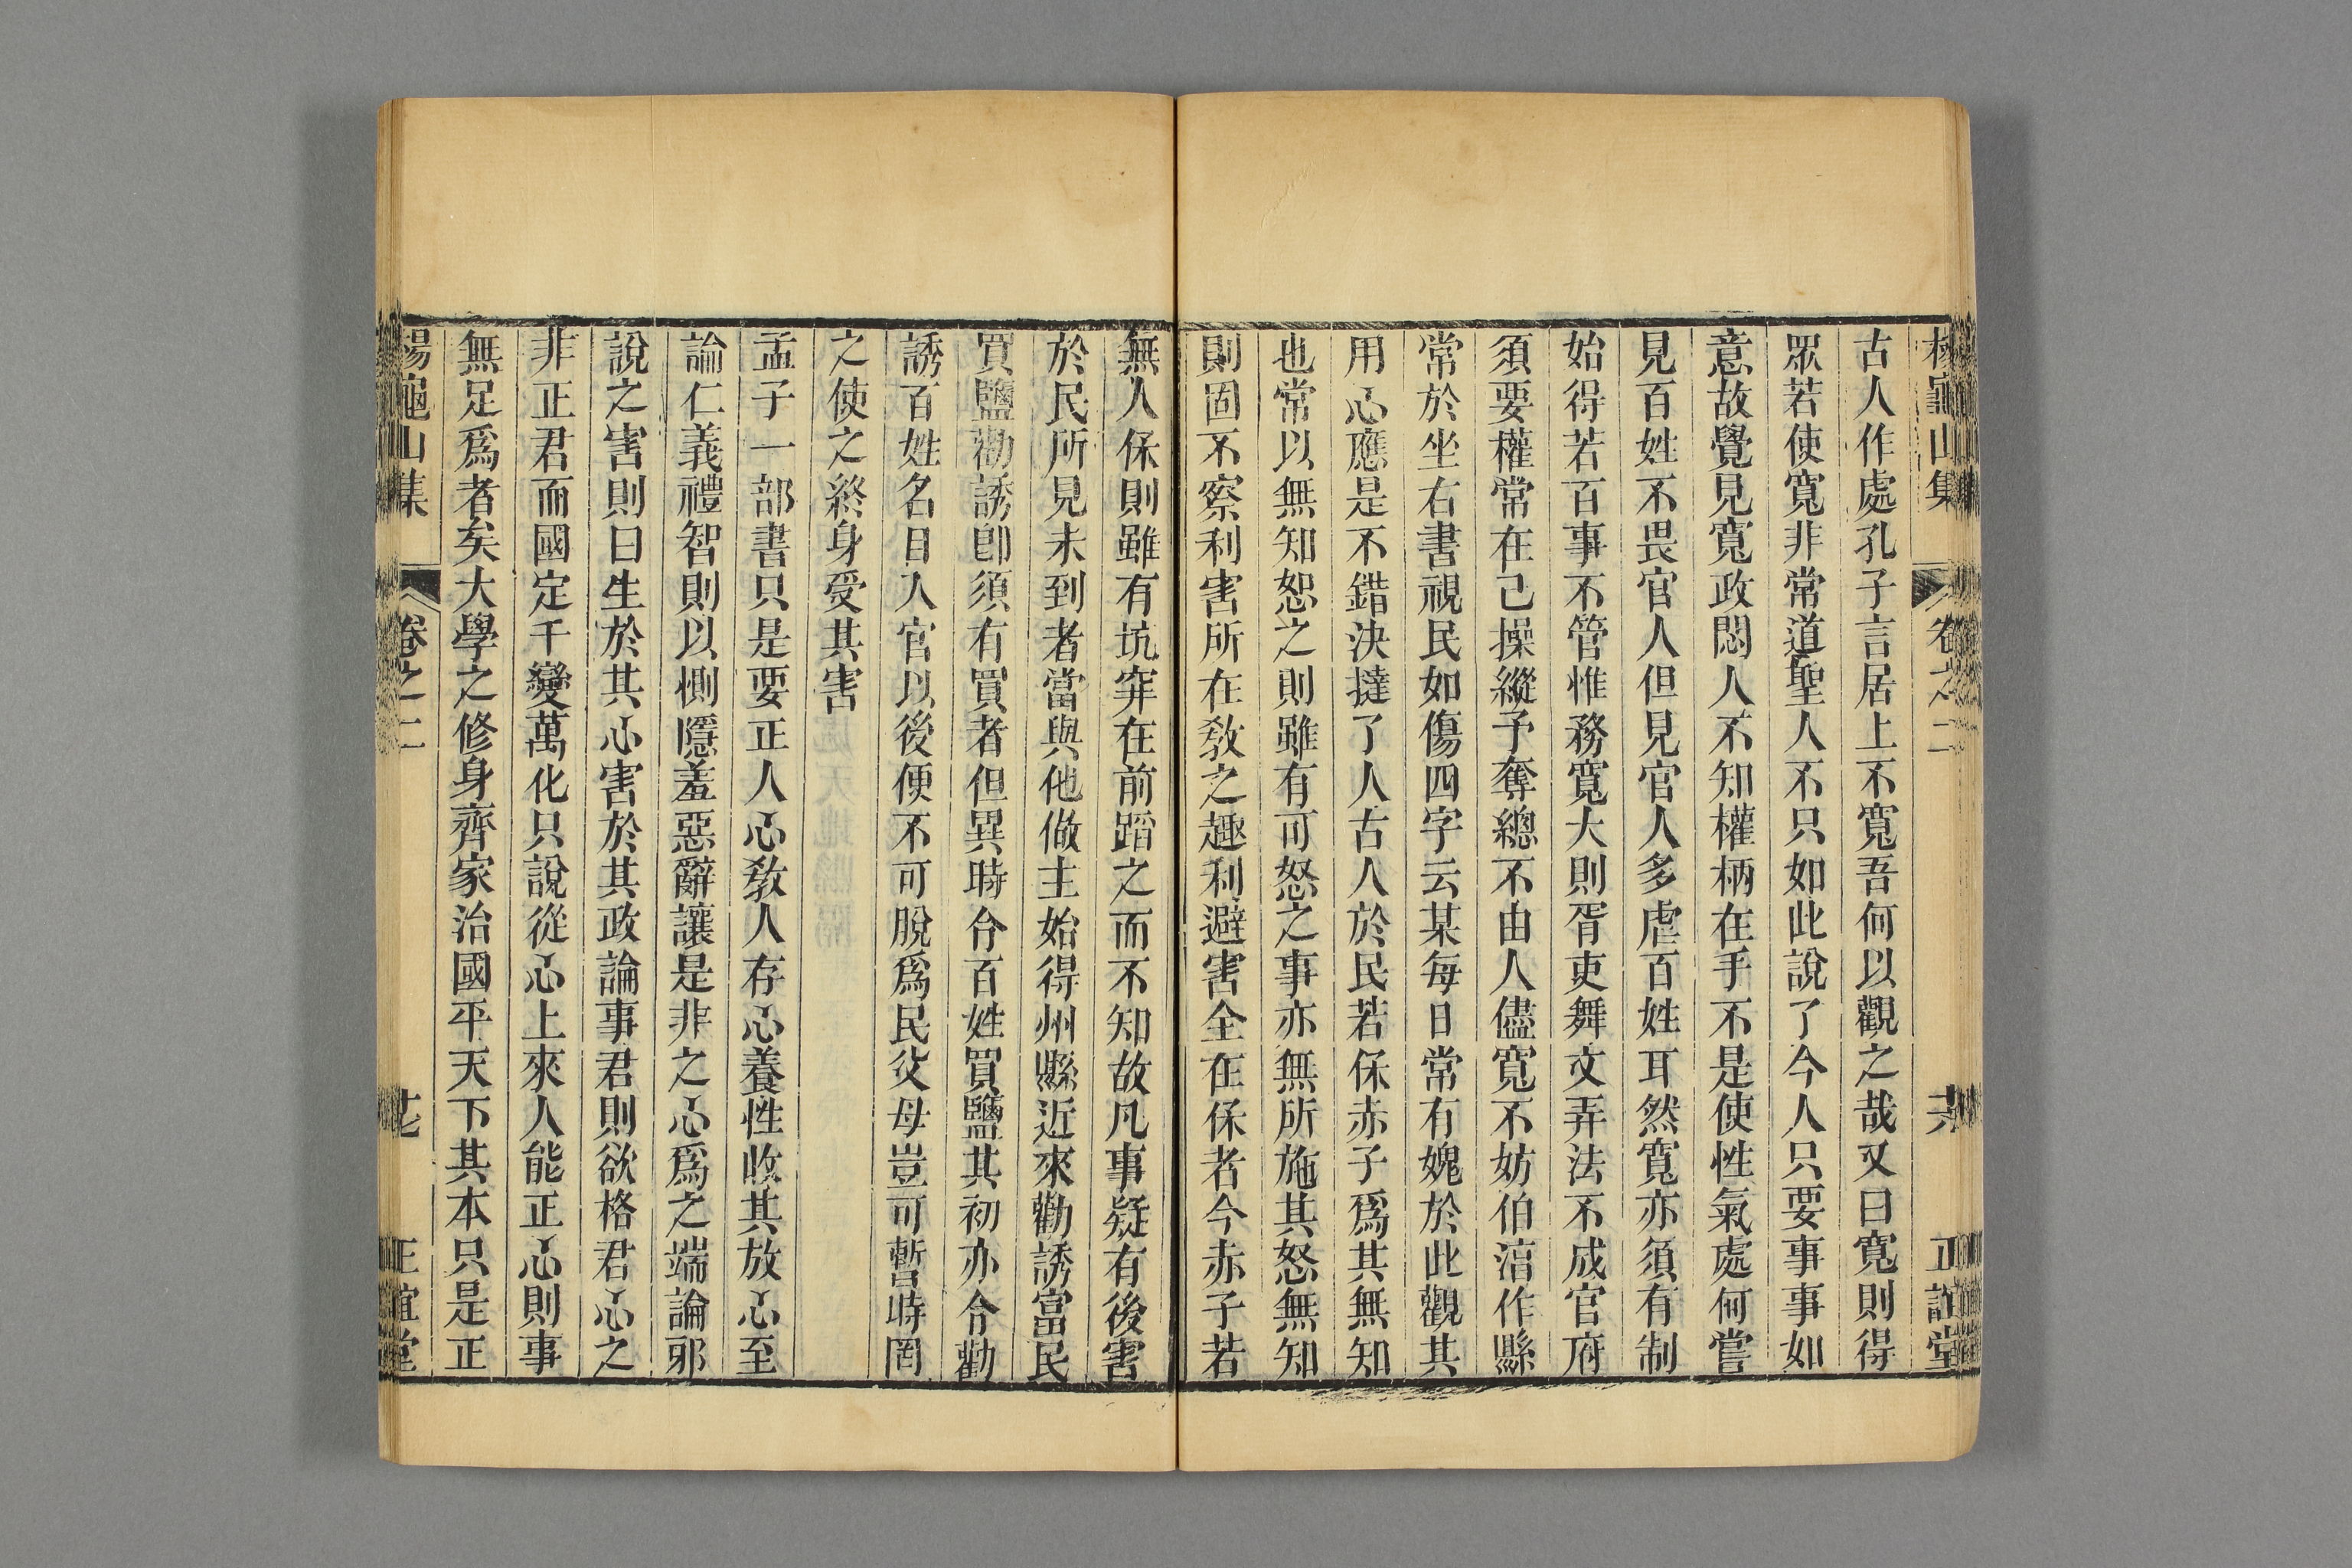 楊龜山集 卷之二 共 正誼堂
古人作處孔子言居上不寬吾何以觀之哉又曰寬則得
眾若使寬非常道聖人不只如此說了今人只要事事如
意故覺見寬政悶人不知權柄在手不是使性氣處何嘗
見百姓不畏官人但見官人多虐百姓耳然寬亦須有制
始得若百事不管惟務寬大則胥吏舞文弄法不成官府
須要權常在己操縱予奪總不由人儘寬不妨伯淳作縣
常於坐右書視民如傷四字云某每日常有媿於此觀其
用心應是不錯決撻了人古人於民若保赤子爲其無知
也常以無知恕之則雖有可怒之事亦無所施其怒無知
則固不察利害所在教之趣利避害全在保者今赤子若
無人保則雖有坑穽在前蹈之而不知故凡事疑有後害
於民所見未到者當與他做主始得州縣近來勸誘富民
買鹽勸誘卽須有買者但異時令百姓買鹽其初亦令勸
誘百姓名目入官以後便不可脫爲民父母豈可暫時罔
之使之終身受其害
孟子一部書只是要正人心教人存心養性收其放心至
論仁義禮智則以惻隱羞惡辭讓是非之心爲之端論邪
說之害則曰生於其心害於其政論事君則欲格君心之
非正君而國定千變萬化只說從心上來人能正心則事
無足爲者矣大學之修身齊家治國平天下其本只是正
楊龜山集 卷之二 七 正誼堂